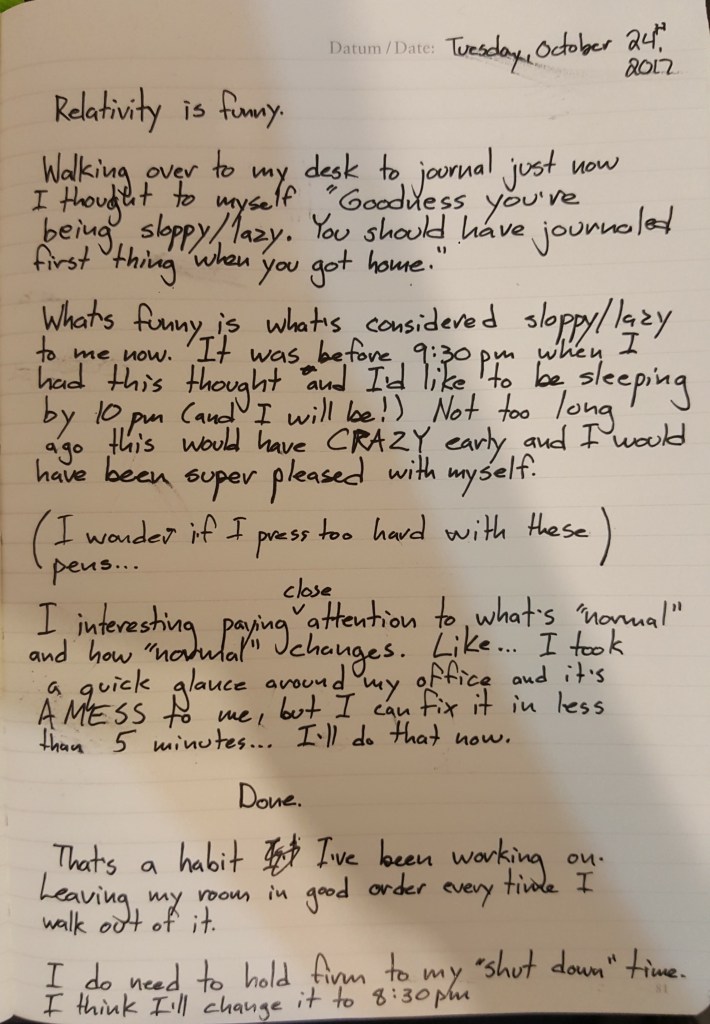 Datum / Date: Tuesday, October 24th,
2017
Relativity is funny.
Walking over to my desk to journal just now
I thought to myself "Goodness you're
being sloppy/lazy. You should have journaled
first thing when you got home."
What's funny is what's considered sloppy/lazy
to me now. It was before 9:30 pm when I
had this thought and I'd like to be sleeping
by 10 pm (and I will be!) Not too long
ago this would have CRAZY early and I would
have been super pleased with myself.
(I wonder if I press too hard with these)
pens...
close
I interesting paying attention to what's "normal"
and how "normal" changes. Like... I took
a quick glance around my office and it's
A MESS to me, but I can fix it in less
than 5 minutes... I'll do that now.
Done.
That's a habit I've been working on.
Leaving my room in good order every time I
walk out of it.
I do need to hold firm to my "shut down" time.
I think I'll change it to 8:30pm
51